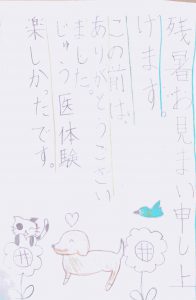 残暑お見まい申し上
げます。
この前は、
ありがとうござい
ました。
じゅう医体験
楽しかったです。